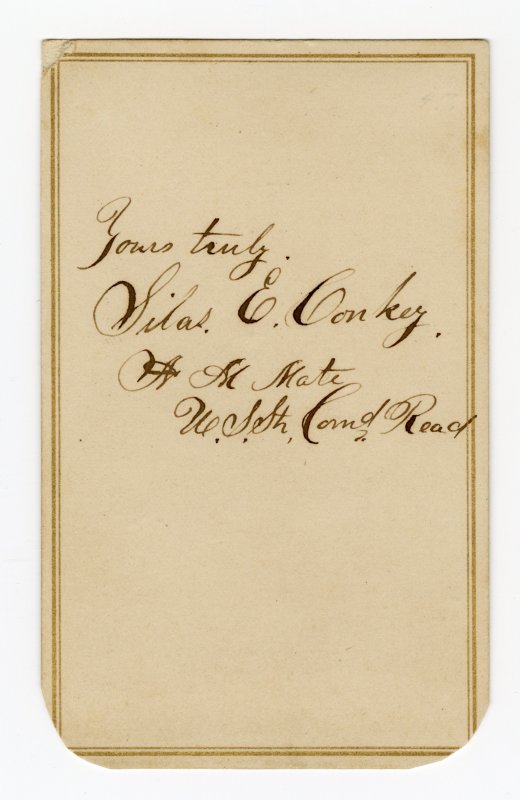 Yours truly.
Silas. E. Conkey.
A M Mate
U.S.Sh, Comd. Read